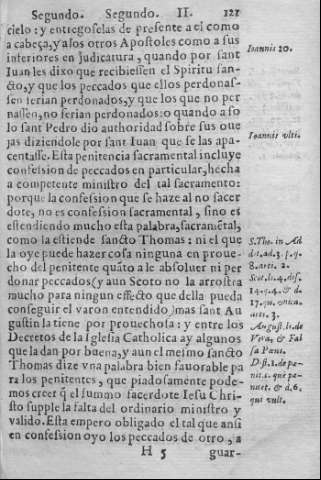 Segundo. Segundo. II. 121
cielo: y entregoselas de presente a el como
a cabeça, y a los otros Apostoles como a sus
inferiores en judicatura, quando por sant
Iuan les dixo que recibiessen el Spiritu san-
cto, y que los peccados que ellos perdonas-
sen serian perdonados, y que los que no per
nassen, no serian perdonados: o quando a so
lo sant Pedro dio authoridad sobre sus oue
jas diziendole por sant Iuan que se las apa-
centasse. Esta penitencia sacramental incluye
confession de peccados en particular, hecha
a competente ministro del tal sacramento:
porque la confession que se haze al no sacer
dote, no es confession sacramental, sino es
estendiendo mucho esta palabra, sacramẽtal,
como la estiende sancto Thomas: ni el que
la oye puede hazer cosa ninguna en proue-
cho del penitente quãto a le absoluer ni per
donar peccados (y aun Scoto no la arrostra
mucho para ningun effecto que della pueda
conseguir el varon entendido) mas sant Au
gustin la tiene por prouechosa: y entre los
Decretos de la Iglesia Catholica ay algunos
que la dan por buena, y aun el mesmo sancto
Thomas dize vna palabra bien fauorable pa
ra los penitentes, que piadosamente pode-
mos creer q̃ el summo sacerdote Iesu Chri-
sto supple la falta del ordinario ministro y
valido. Esta empero obligado el tal que ansi
en confession oyo los peccados de otro, a
H 5 guar-
Ioannis 20.
Ioannis vlti.
S. Tho. in Ad
dit. ad. 3. q.
8. arti. 2.
Scot. li. 4. dis.
14. q. 4. & d.
17. q. vnica.
arti. 3.
August. li. de
Vera, & Fal
sa Pœni.
D. st. 1. de pœ-
nit. c. quẽ pœ-
nitet. & d. 6.
qui vult.